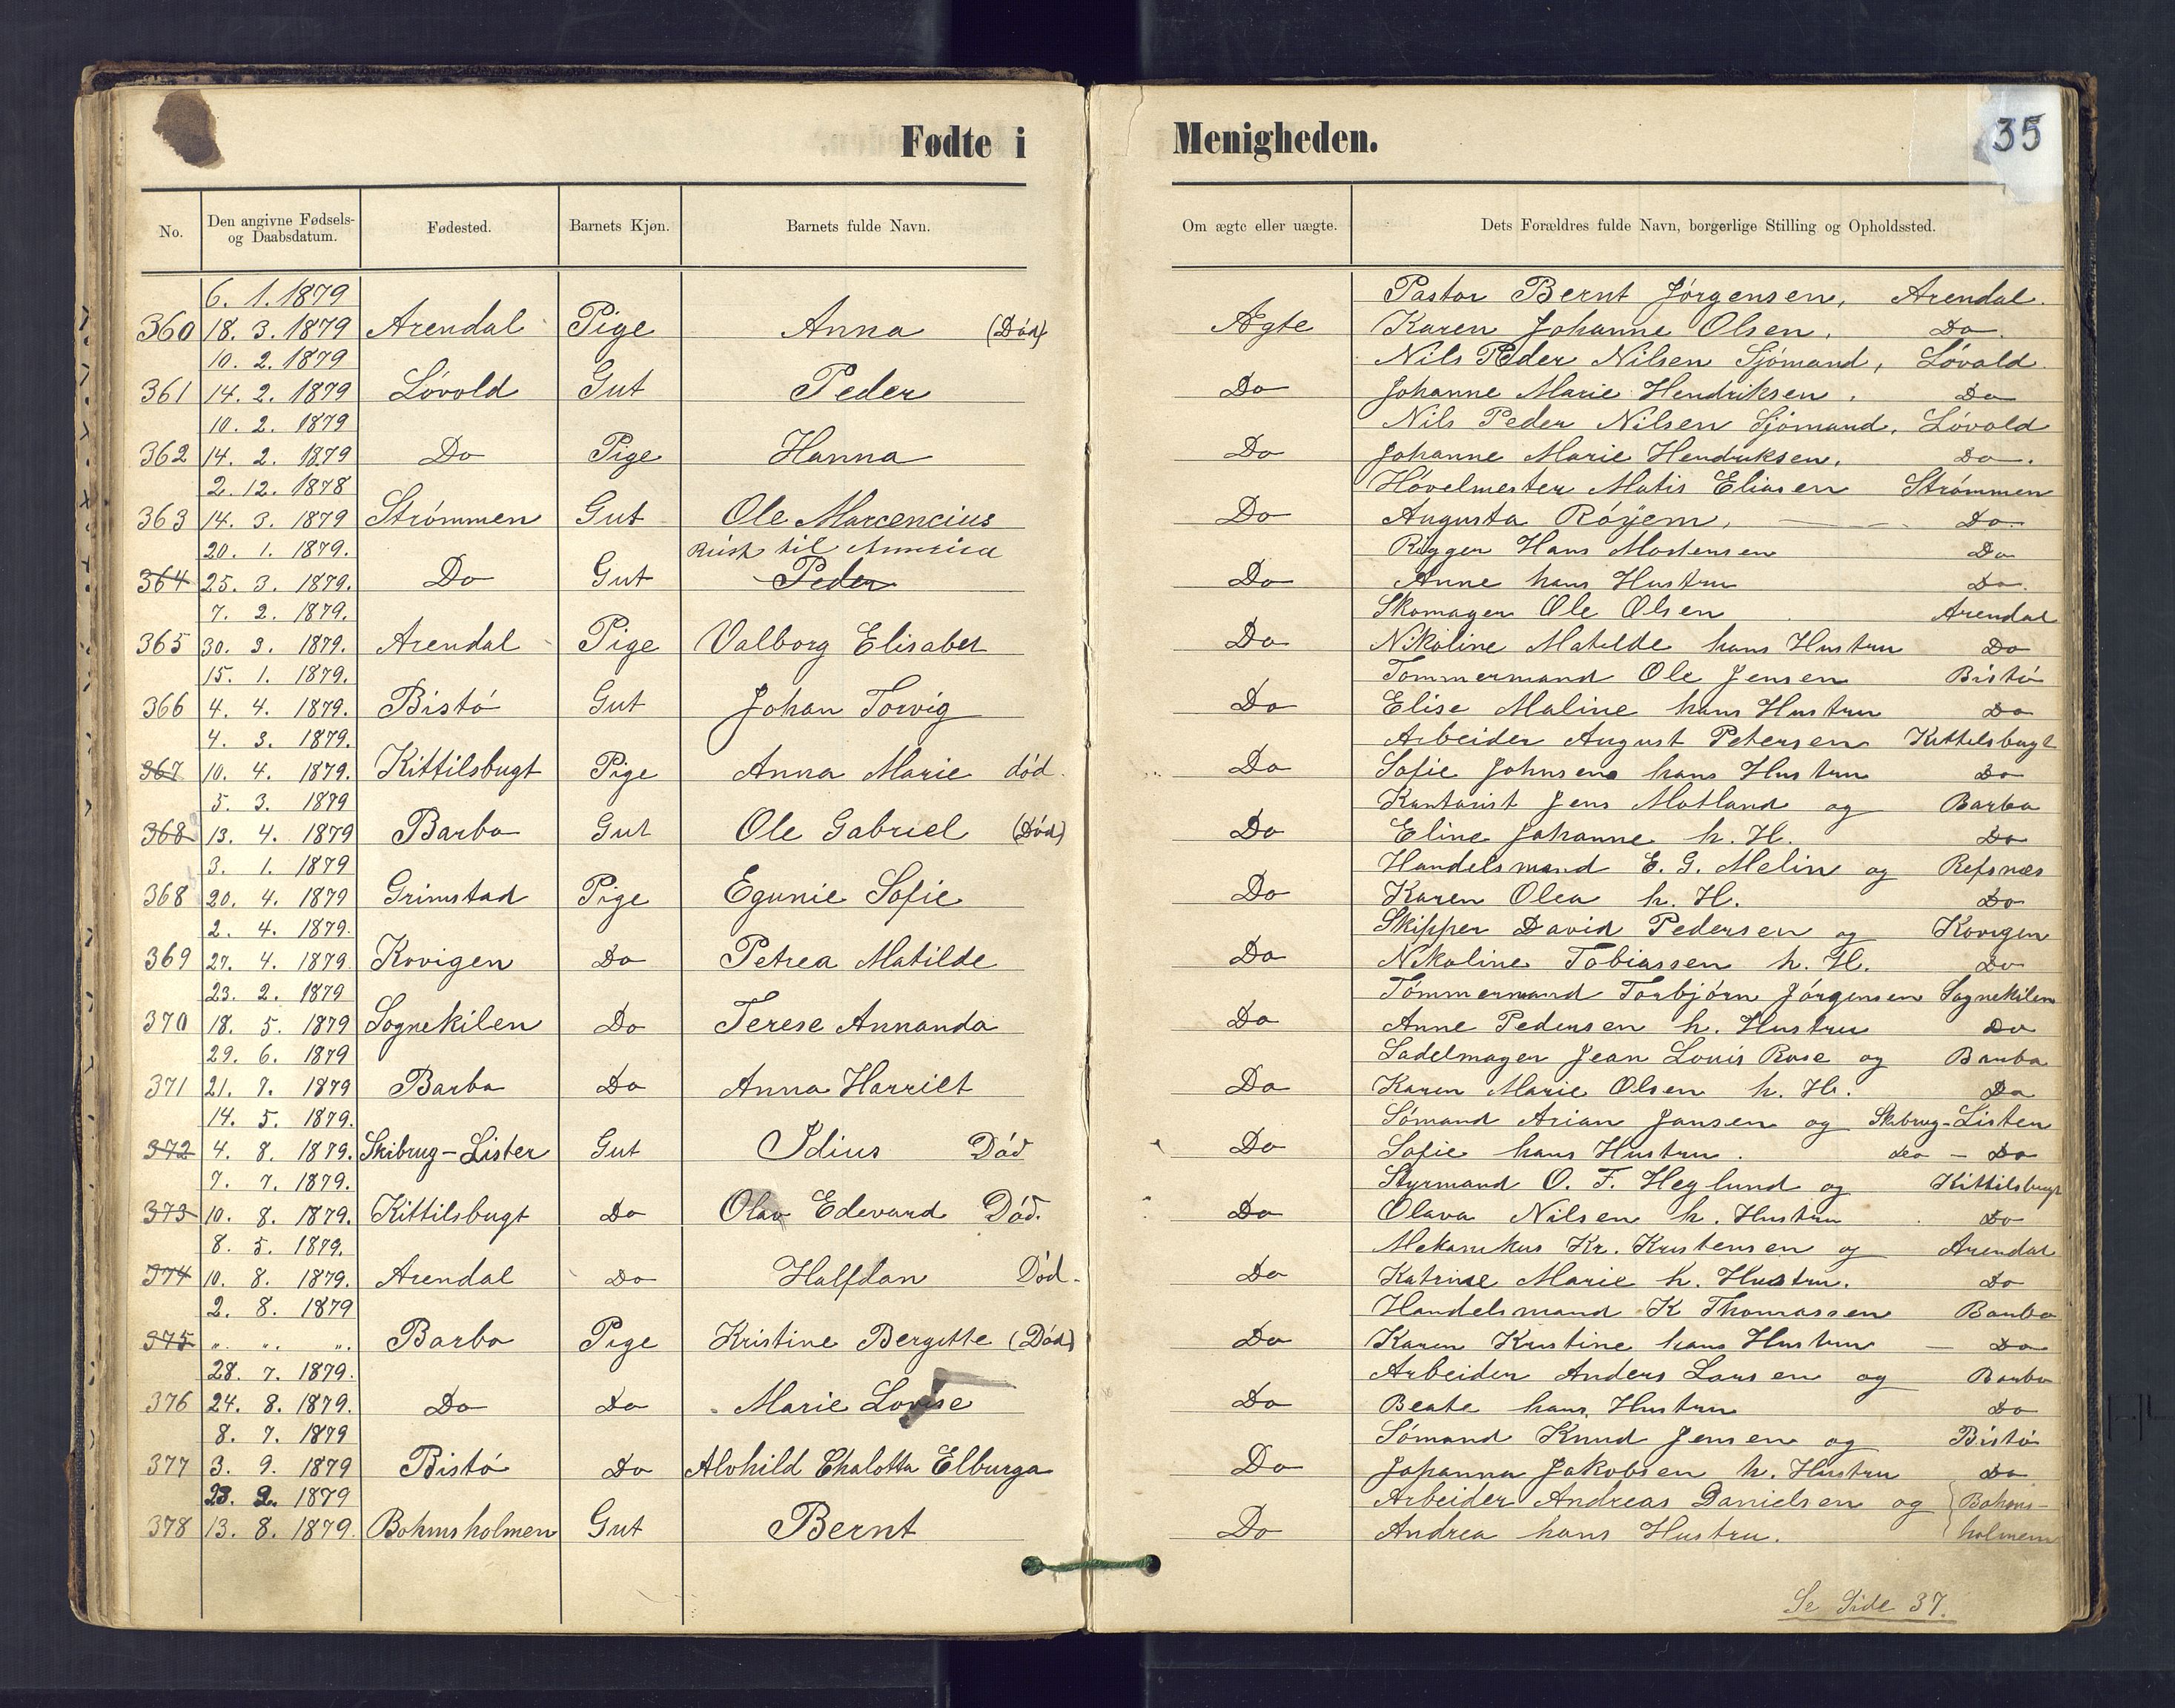 Fødte i Menigheden.
35
No. Den angivne Fødsels- og Daabsdatum. Fødested. Barnets Kjøn. Barnets fulde Navn. Om ægte eller uægte. Dets Forældres fulde Navn, borgerlige Stilling og Opholdssted.
6. 1. 1879 Pastor Bernt Jørgensen, Arendal.
360 18. 3. 1879 Arendal Pige Anna (Død) Ægte Karen Johanne Olsen, Do.
10. 2. 1879 Nils Peder Nilsen Sjómand, Lóvold.
361 14. 2. 1879 Lóvold Gut Peder Do Johanne Marie Hendriksen. Do
10. 2. 1879 Nils Peder Nilsen Sjómand, Lóvold
362 14. 2. 1879 Do Pige Hanna Do Johanne Marie Hendriksen. Do.
2. 12. 1878 Hóvelmester Matis Eliasen Strómmen
363 14. 3. 1879 Strómmen Gut Ole Marcencius Do Augusta Róyem, Do.
20. 1. 1879. Reist til Amerika Rigger Hans Mortensen Do
364 25. 3. 1879. Do Gut Peder Do Anne hans Hustru Do.
7. 2. 1879. Skomager Ole Olsen Arendal
365 30. 3. 1879. Arendal Pige Valborg Elisabet Do Nikoline Matilde hans Hustru Do
15. 1. 1879. Tømmermand Ole Jensen Bistó
366 4. 4. 1879. Bistó Gut Johan Torvig Do Elise Maline hans Hustru Do
4. 3. 1879. Arbeider August Petersen Kittilsbugt
367 10. 4. 1879. Kittilsbugt Pige Anna Marie død. Do Sofie Johnsen hans Hustru Do
5. 3. 1879 Kontorist Jens Motland og Barbo
368 13. 4. 1879 Barbo Gut Ole Gabriel (Død) Do Eline Johanne h. H. Do
3. 1. 1879 Handelsmand E. G. Melin og Refsnæs
368 20. 4. 1879 Grimstad Pige Egunie Sofie Do Karen Olea h. H. Do
2. 4. 1879. Skipper David Pedersen og Kovigen
369 27. 4. 1879. Kovigen Do Petrea Matilde Do Nikoline Tobiassen h. H. Do
23. 2. 1879 Tómmermand Torbjórn Jórgensen Sognekilen
370 18. 5. 1879 Sognekilen Do Terese Annanda Do Anne Pedersen h. Hustru Do
29. 6. 1879 Sadelmager Jean Louis Rose og Barbo
371 21. 7. 1879 Barbo Do Anna Harriet Do Karen Marie Olsen h. H. Do
14. 5. 1879. Sómand Arian Jansen og Skibrug-Lister
372 4. 8. 1879. Skibrug-Lister Gut Idius Død Do Sofie hans Hustru. do - Do
7. 7. 1879. Styrmand O. F. Heglund og Kittilsbugt
373 10. 8. 1879. Kittilsbugt Do Olav Edevard Død. Do Olava Nilsen h. Hustru Do
8. 5. 1879. Mekanikus Kr. Kristensen og Arendal
374 10. 8. 1879. Arendal Do Halfdan Død. Do Katrine Marie h. Hustru. Do
2. 8. 1879 Handelsmand K Thomassen Barbo
375 " " " Barbo Pige Kristine Bergitte (Død) Do Karen Kristine hans Hustru - Do
28. 7. 1879. Arbeider Anders Larsen og Barbo
376 24. 8. 1879. Do Do Marie Lovise Do Beate hans Hustru Do
8. 7. 1879 Sómand Knud Jensen og Bistó
377 3. 9. 1879 Bistó Do Alvhild Chalotta Elburga Do Johanna Jakobsen h. Hustru Do
23. 2. 1879 Arbeider Andreas Danielsen og Bohms-
378 13. 8. 1879. Bohmsholmen Gut Bernt Do Andrea hans Hustru. holmen
Se Side 37.